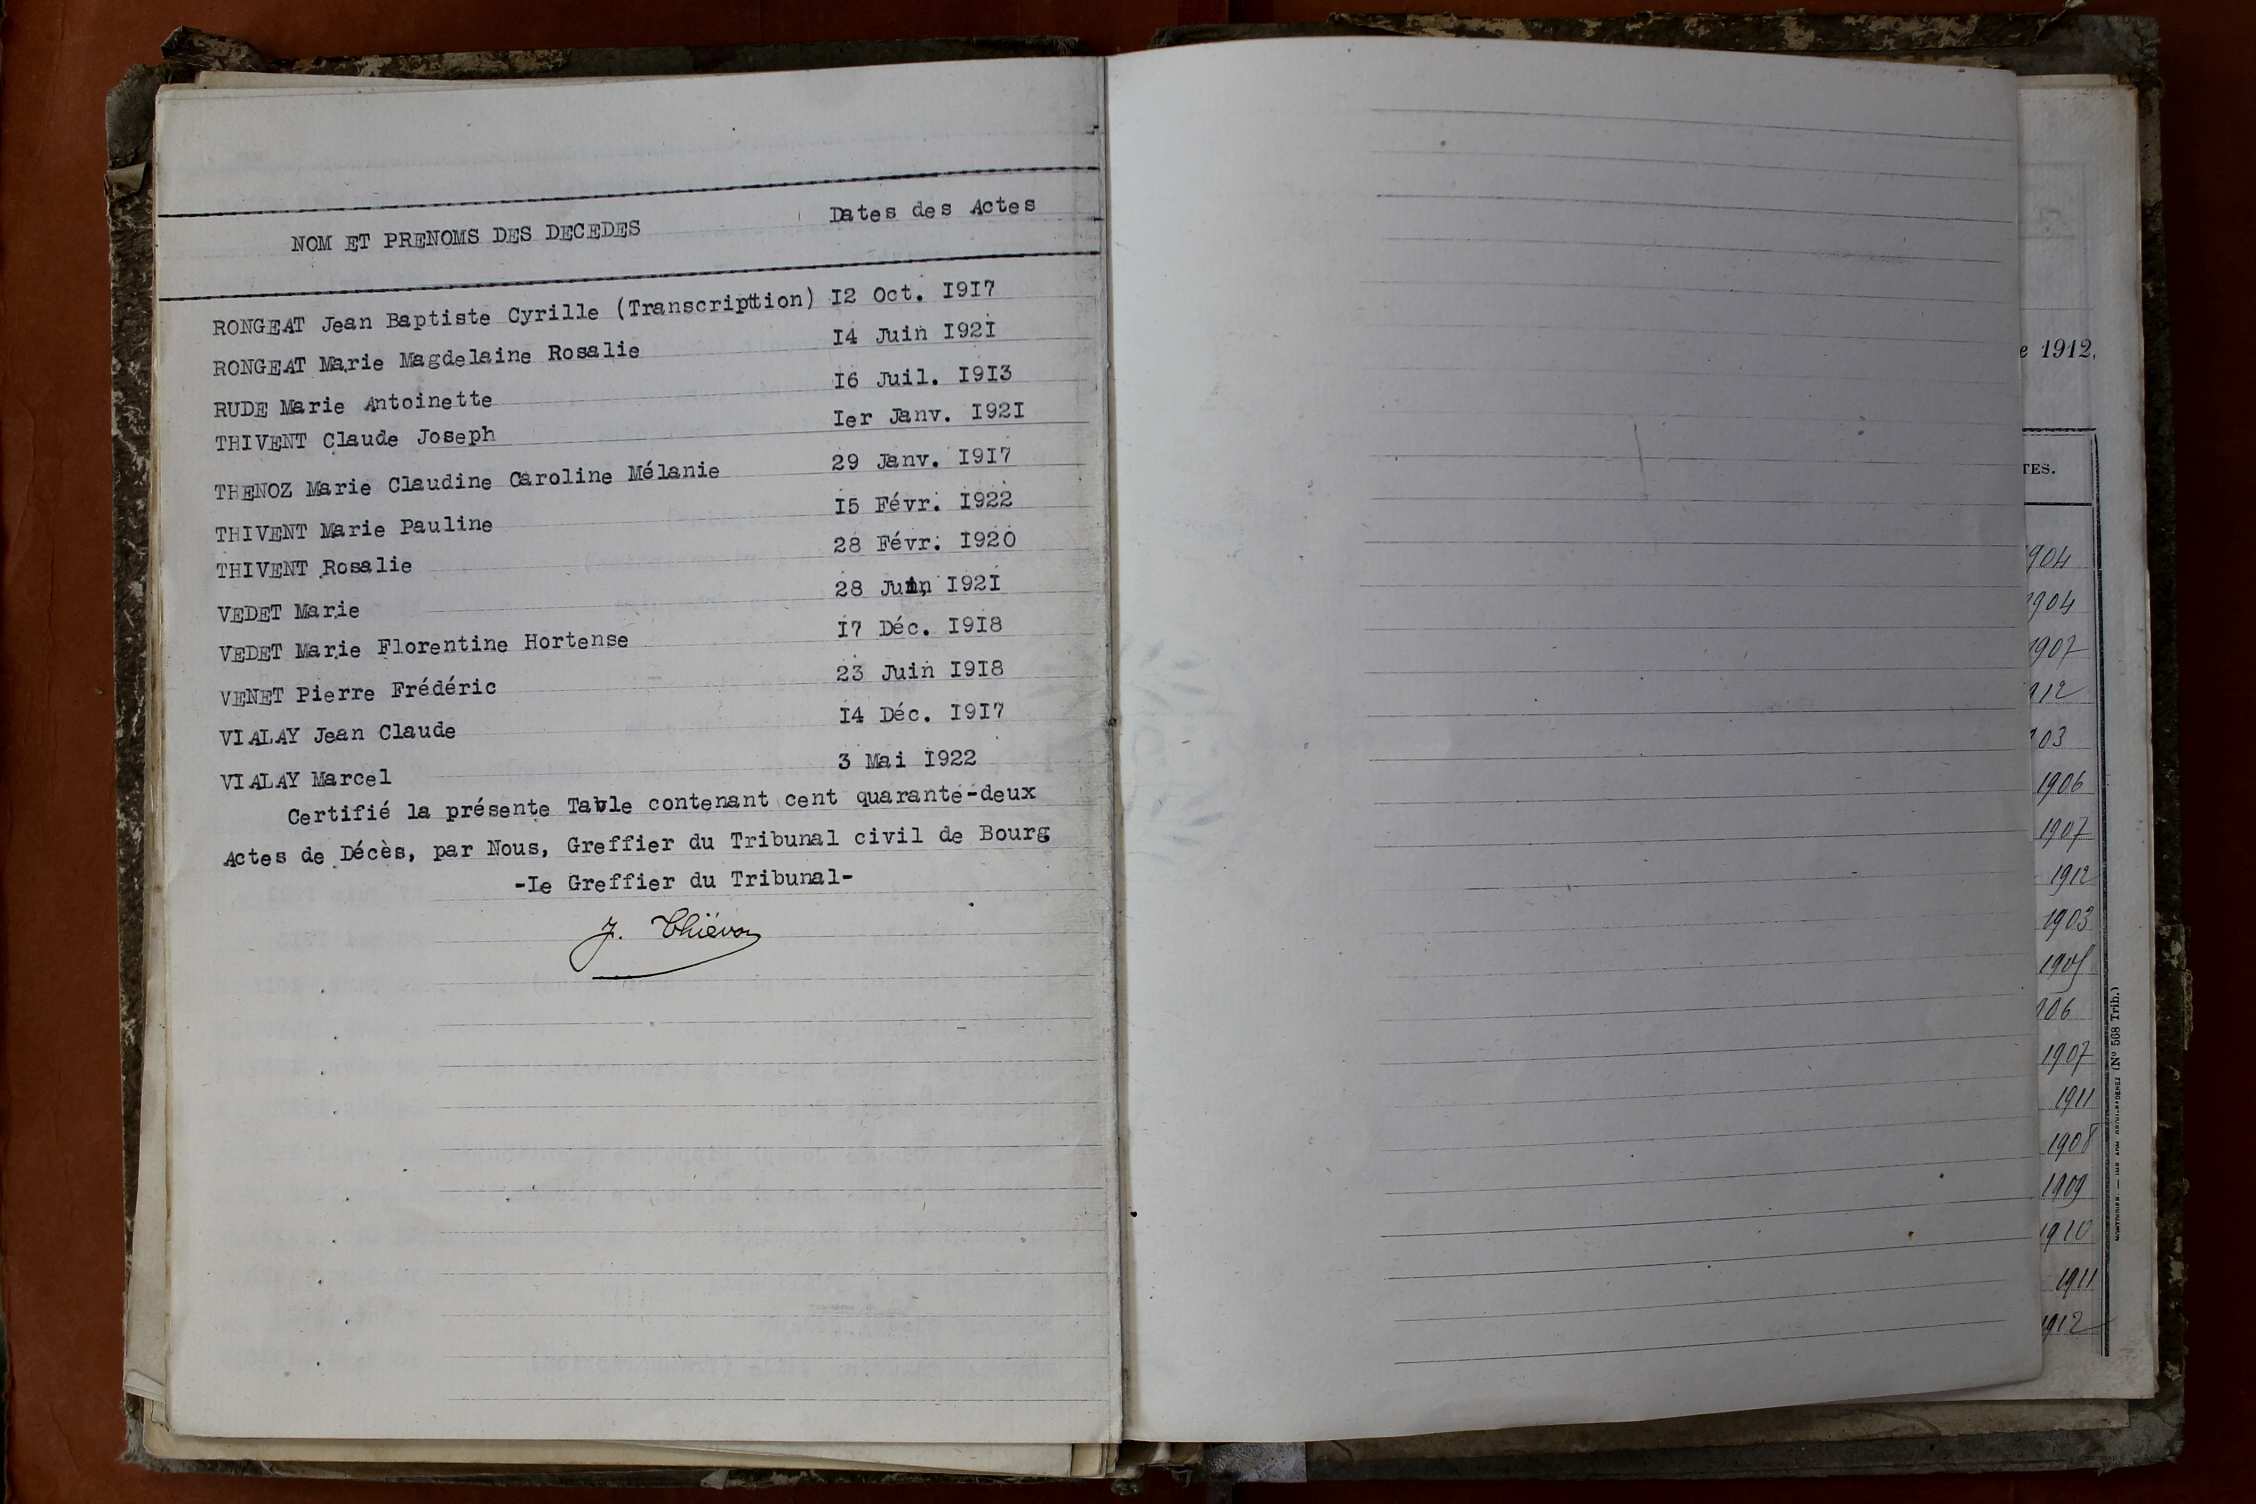 NOM ET PRENOMS DES DECEDES Dates des Actes
RONGEAT Jean Baptiste Cyrille (Transcription) I2 Oct. I9I7
RONGEAT Marie Magdelaine Rosalie I4 Juin I92I
RUDE Marie Antoinette I6 Juil. I9I3
THIVENT Claude Joseph Ier Janv. I92I
THENOZ Marie Claudine Caroline Mélanie 29 Janv. I9I7
THIVENT Marie Pauline I5 Févr. I922
THIVENT Rosalie 28 Févr. I920
VEDET Marie 28 Juin I92I
VEDET Marie Florentine Hortense I7 Déc. I9I8
VENET Pierre Frédéric 23 Juin I9I8
VIALAY Jean Claude I4 Déc. I9I7
VIALAY Marcel 3 Mai I922
Certifié la présente Table contenant cent quarante-deux
Actes de Décès, par Nous, Greffier du Tribunal civil de Bourg
-Le Greffier du Tribunal-
J. Thiévon
e 1912,
TES.
1904
1904
1907
912
903
1906
1907
1912
1903
1905
906
1907
1911
1908
1909
1910
1911
1912
(N° 568 Trib.)